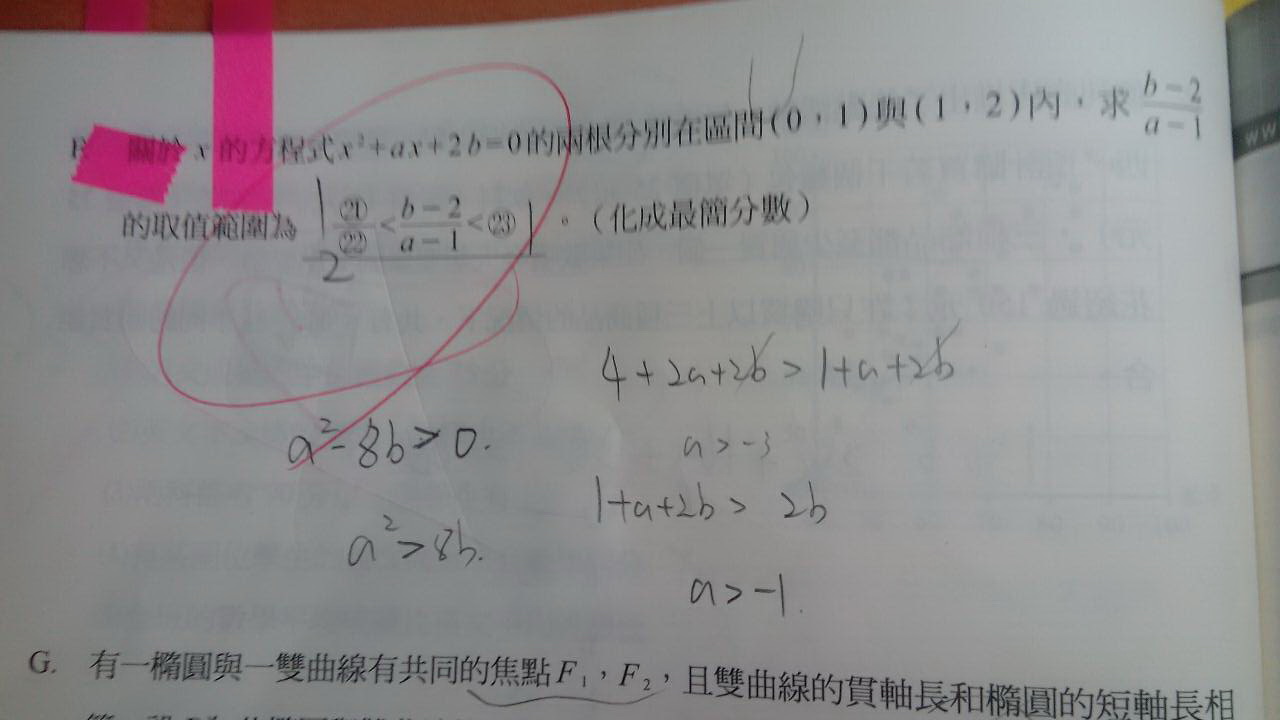 關於 x 的方程式 x²+ax+2b=0的兩根分別在區間(0,1)與(1,2)內,求 \frac{b-2}{a-1}
的取值範圍為 ㉑/㉒ < \frac{b-2}{a-1} < ㉓ 。(化成最簡分數)
2
4+2a+2b > 1+a+2b
a²-8b>0.
a>-3
1+a+2b > 2b
a²>8b.
a>-1.
G. 有一橢圓與一雙曲線有共同的焦點F₁,F₂,且雙曲線的貫軸長和橢圓的短軸長相